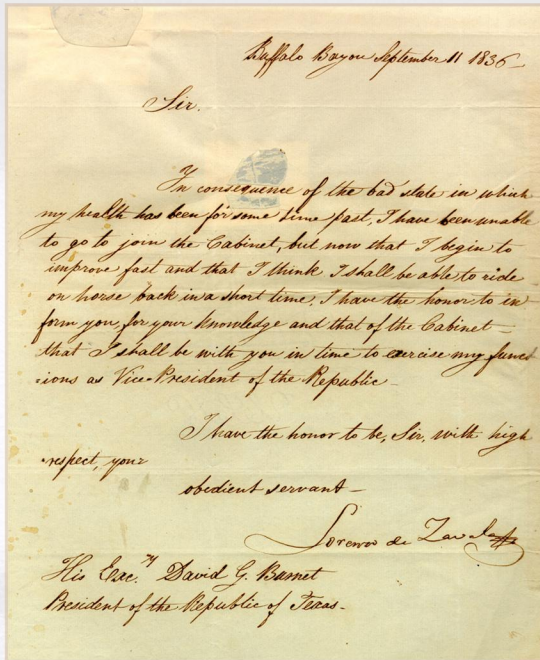 Buffalo Bayou September 11 1836
Sir.
In consequence of the bad state in which
my health has been for some time past, I have been unable
to go to join the Cabinet, but now that I begin to
improve fast and that I think I shall be able to ride
on horse back in a short time, I have the honor to in
form you, for your knowledge and that of the Cabinet –
that I shall be with you in time to exercise my funct
ions as Vice-President of the Republic –
I have the honor to be, Sir, with high
respect, your
obedient servant –
Lorenzo de Zavala
His Exc.y David G. Burnet
President of the Republic of Texas –